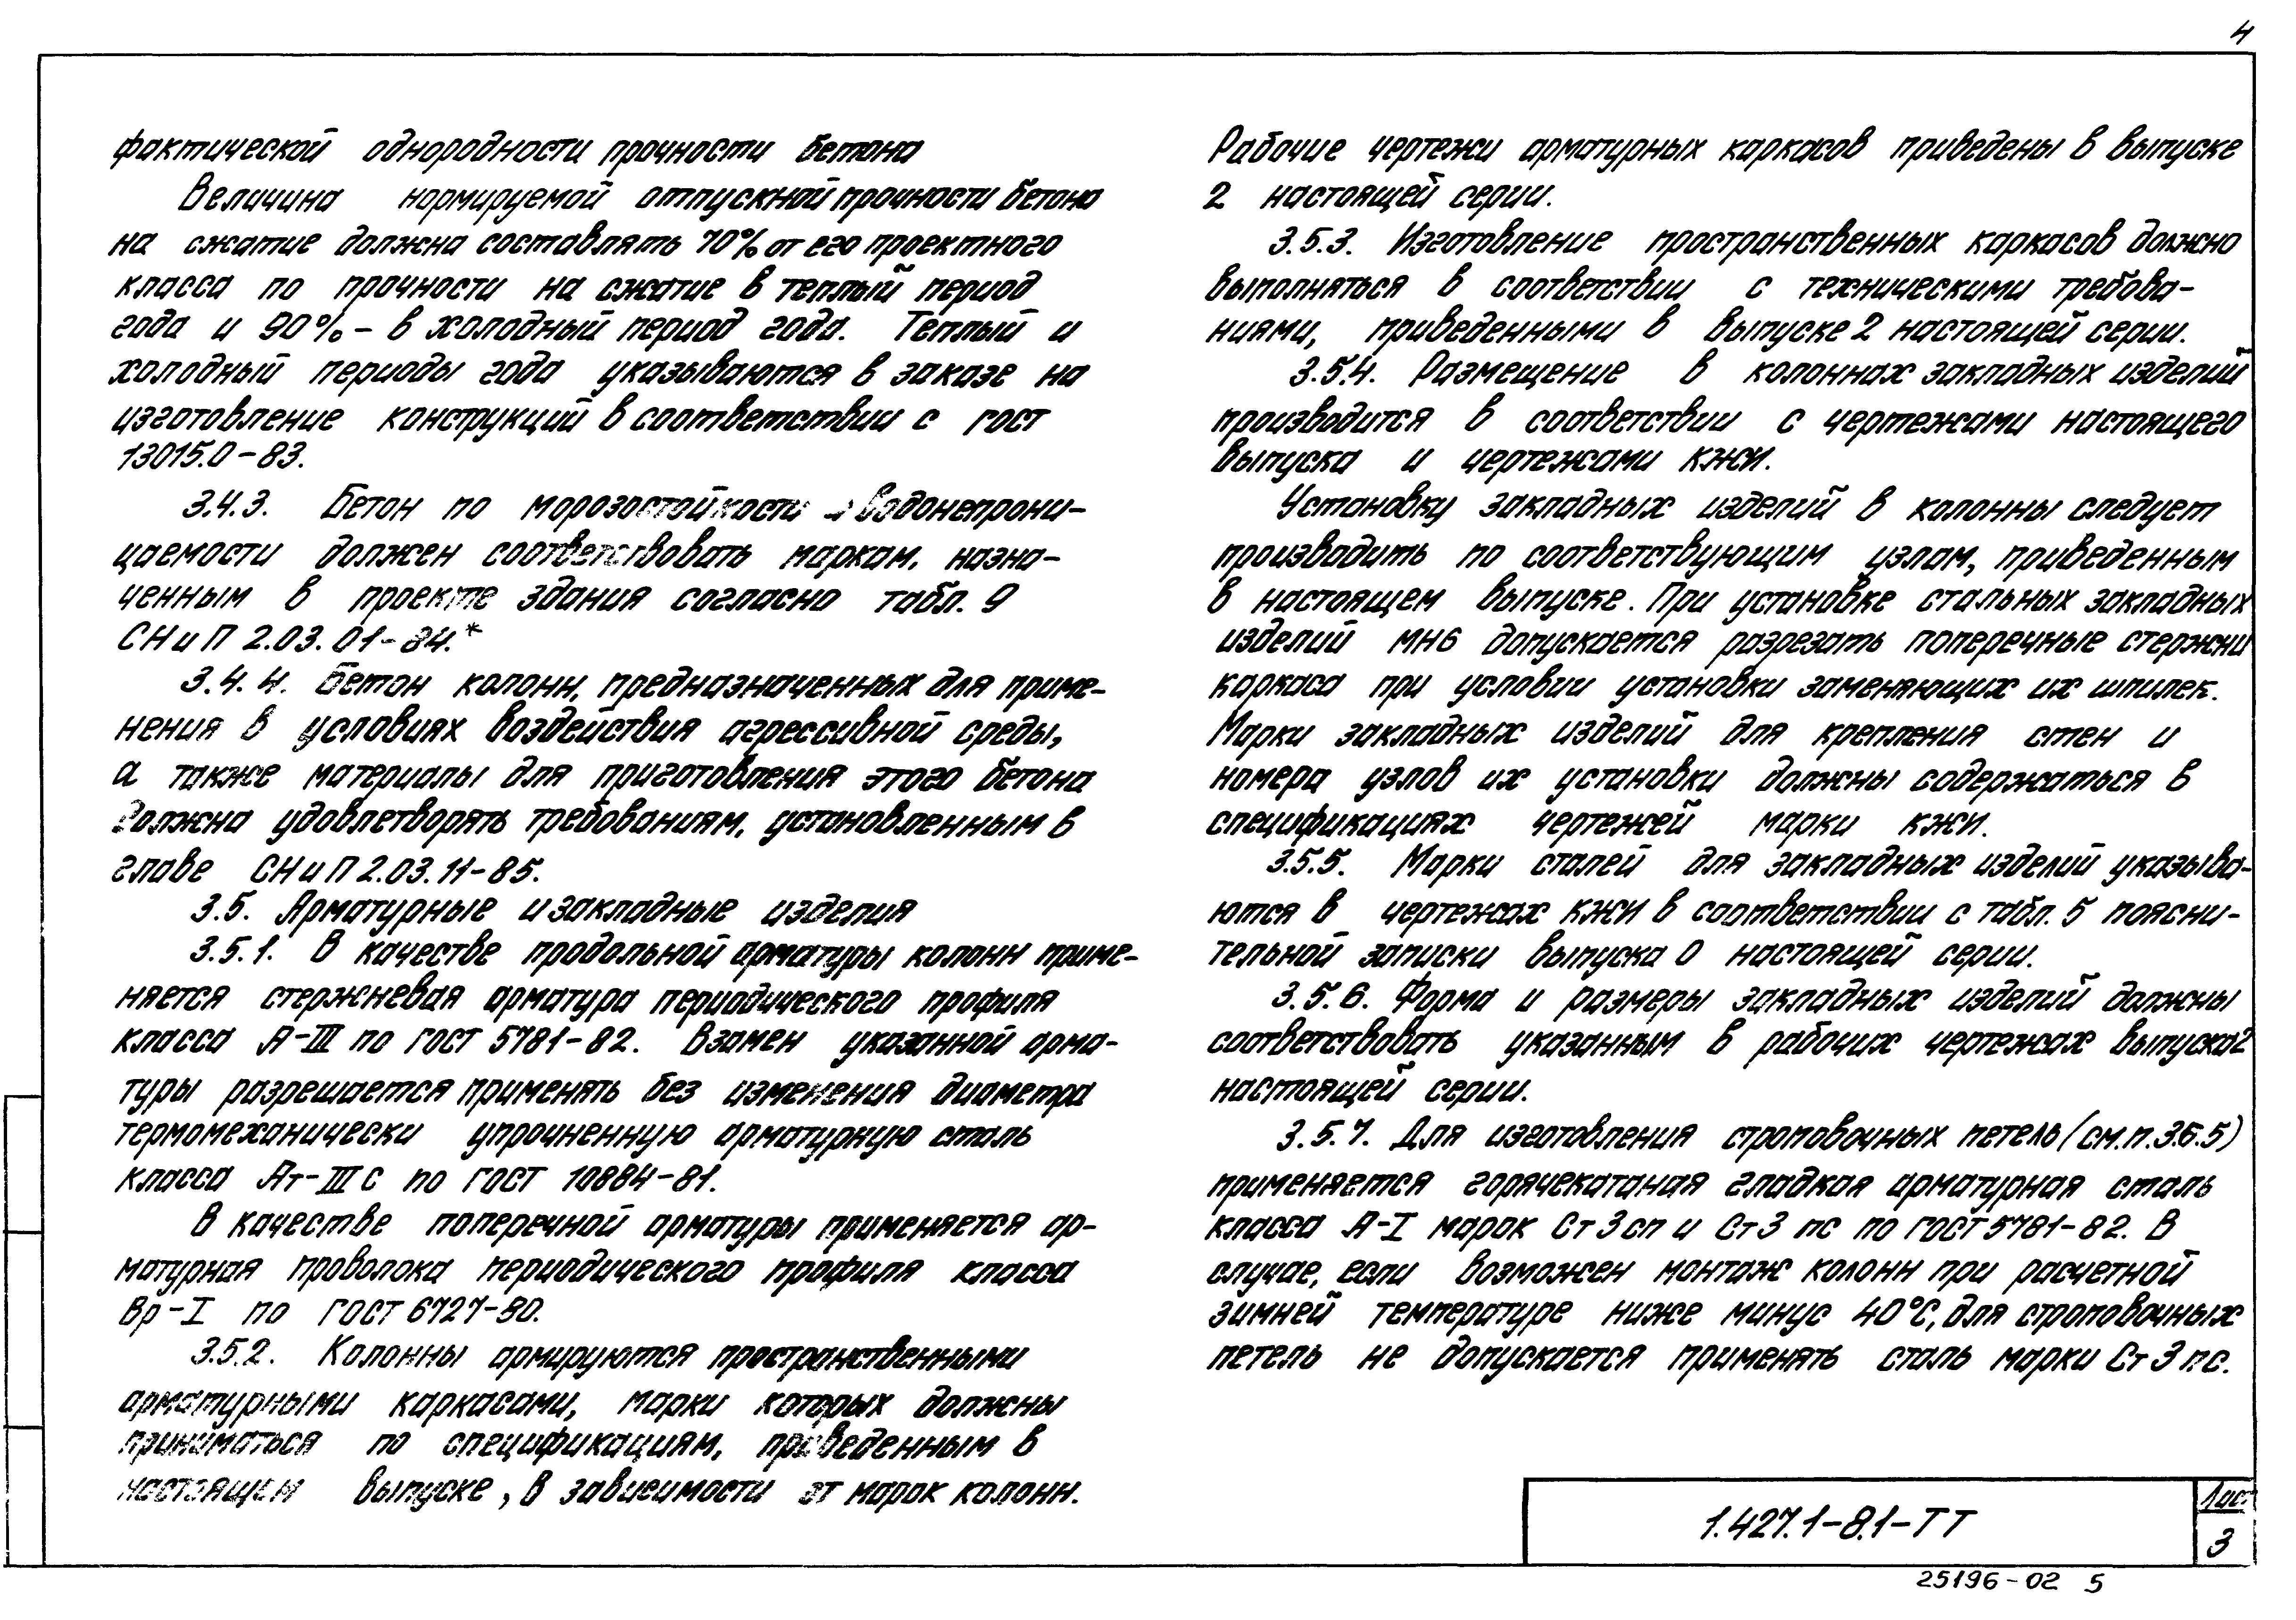 4
фактической однородности прочности бетона
Величина нормируемой отпускной прочности бетона
на сжатие должна составлять 70% от его проектного
класса по прочности на сжатие в теплый период
года и 90% – в холодный период года. Теплый и
холодный периоды года указываются в заказе на
изготовление конструкций в соответствии с ГОСТ
13015.0-83.
3.4.3. Бетон по морозостойкости и водонепрони-
цаемости должен соответствовать маркам, назна-
ченным в проекте здания согласно табл. 9
СНиП 2.03.01-84.*
3.4.4. Бетон колонн, предназначенных для приме-
нения в условиях воздействия агрессивной среды,
а также материалы для приготовления этого бетона
должна удовлетворять требованиям, установленным в
главе СНиП 2.03.11-85.
3.5. Арматурные и закладные изделия
3.5.1. В качестве продольной арматуры колонн приме-
няется стержневая арматура периодического профиля
класса А-III по ГОСТ 5781-82. Взамен указанной арма-
туры разрешается применять без изменения диаметра
термомеханически упрочненную арматурную сталь
класса Ат-IIIС по ГОСТ 10884-81.
В качестве поперечной арматуры применяется ар-
матурная проволока периодического профиля класса
Вр-I по ГОСТ 6727-80.
3.5.2. Колонны армируются пространственными
арматурными каркасами, марки которых должны
приниматься по спецификациям, приведенным в
настоящем выпуске, в зависимости от марок колонн.
Рабочие чертежи арматурных каркасов приведены в выпуске
2 настоящей серии.
3.5.3. Изготовление пространственных каркасов должно
выполняться в соответствии с техническими требова-
ниями, приведенными в выпуске 2 настоящей серии.
3.5.4. Размещение в колоннах закладных изделий
производится в соответствии с чертежами настоящего
выпуска и чертежами КЖИ.
Установку закладных изделий в колонны следует
производить по соответствующим узлам, приведенным
в настоящем выпуске. При установке стальных закладных
изделий МН6 допускается разрезать поперечные стержни
каркаса при условии установки заменяющих их шпилек.
Марки закладных изделий для крепления стен и
номера узлов их установки должны содержаться в
спецификациях чертежей марки КЖИ.
3.5.5. Марки сталей для закладных изделий указыва-
ются в чертежах КЖИ в соответствии с табл. 5 поясни-
тельной записки выпуска 0 настоящей серии.
3.5.6. Форма и размеры закладных изделий должны
соответствовать указанным в рабочих чертежах выпуска 2
настоящей серии.
3.5.7. Для изготовления строповочных петель (см.п.3.6.5)
применяется горячекатаная гладкая арматурная сталь
класса А-I марок Ст3сп и Ст3 пс по ГОСТ 5781-82. В
случае, если возможен монтаж колонн при расчетной
зимней температуре ниже минус 40°С, для строповочных
петель не допускается применять сталь марки Ст 3 пс.
1.427.1-8.1-ТТ
Лист
3
25196-02 5